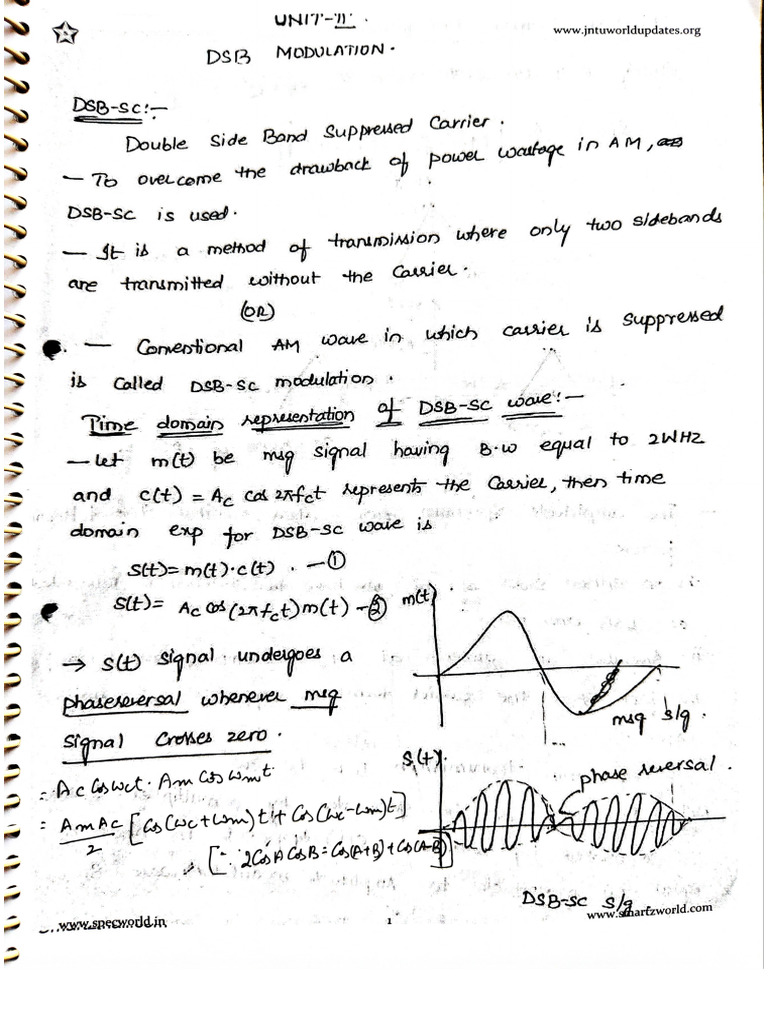 UNIT-II.
www.jntuworldupdates.org
DSB MODULATION.
DSB-SC:-
Double Side Band Suppressed Carrier.
- To overcome the drawback of power wastage in AM,
DSB-SC is used.
- It is a method of transmission where only two sidebands
are transmitted without the Carrier.
(OR)
- Conventional AM wave in which carrier is suppressed
is Called DSB-SC modulation.
Time domain representation of DSB-SC wave:-
- Let m(t) be msg signal having B.W equal to 2WHZ
and c(t) = Ac cos 2πfct represents the Carrier, then time
domain exp for DSB-SC wave is
S(t)=m(t).c(t). -①
S(t)= Ac cos(2πfct)m(t) -②
m(t)
→ s(t) signal undergoes a
phasereversal whenever msg
signal Crosses zero.
msg s/g.
S(t).
phase reversal.
= Ac Cos wct. Am Cos wmt
= AmAc/2 [Cos(wc+wm)t + Cos(wc-wm)t]
[∵ 2CosA CosB = Cos(A+B)+Cos(A-B)]
DSB-SC s/g
www.smartzworld.com
www.specworld.in
1